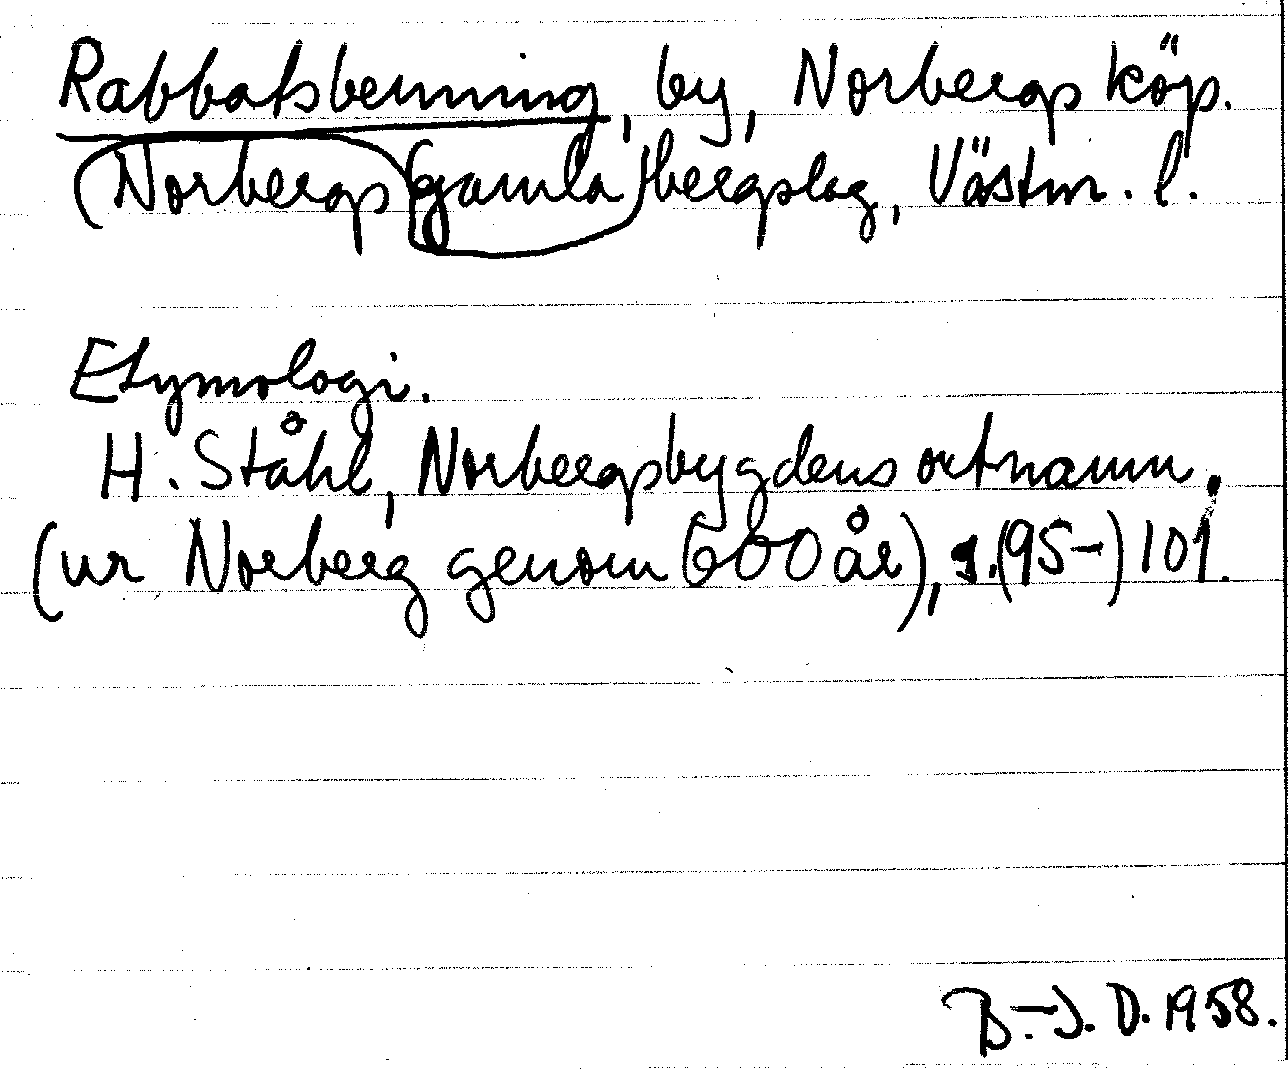 Rabbatsbenning, by, Norbergs köp.
(Norbergs (gamla) bergslag, Västm. l.
Etymologi.
H. Ståhl, Norbergsbygdens ortnamn.
(ur Norberg genom 600 år), s. (95-) 101.
B.-J. D. 1958.